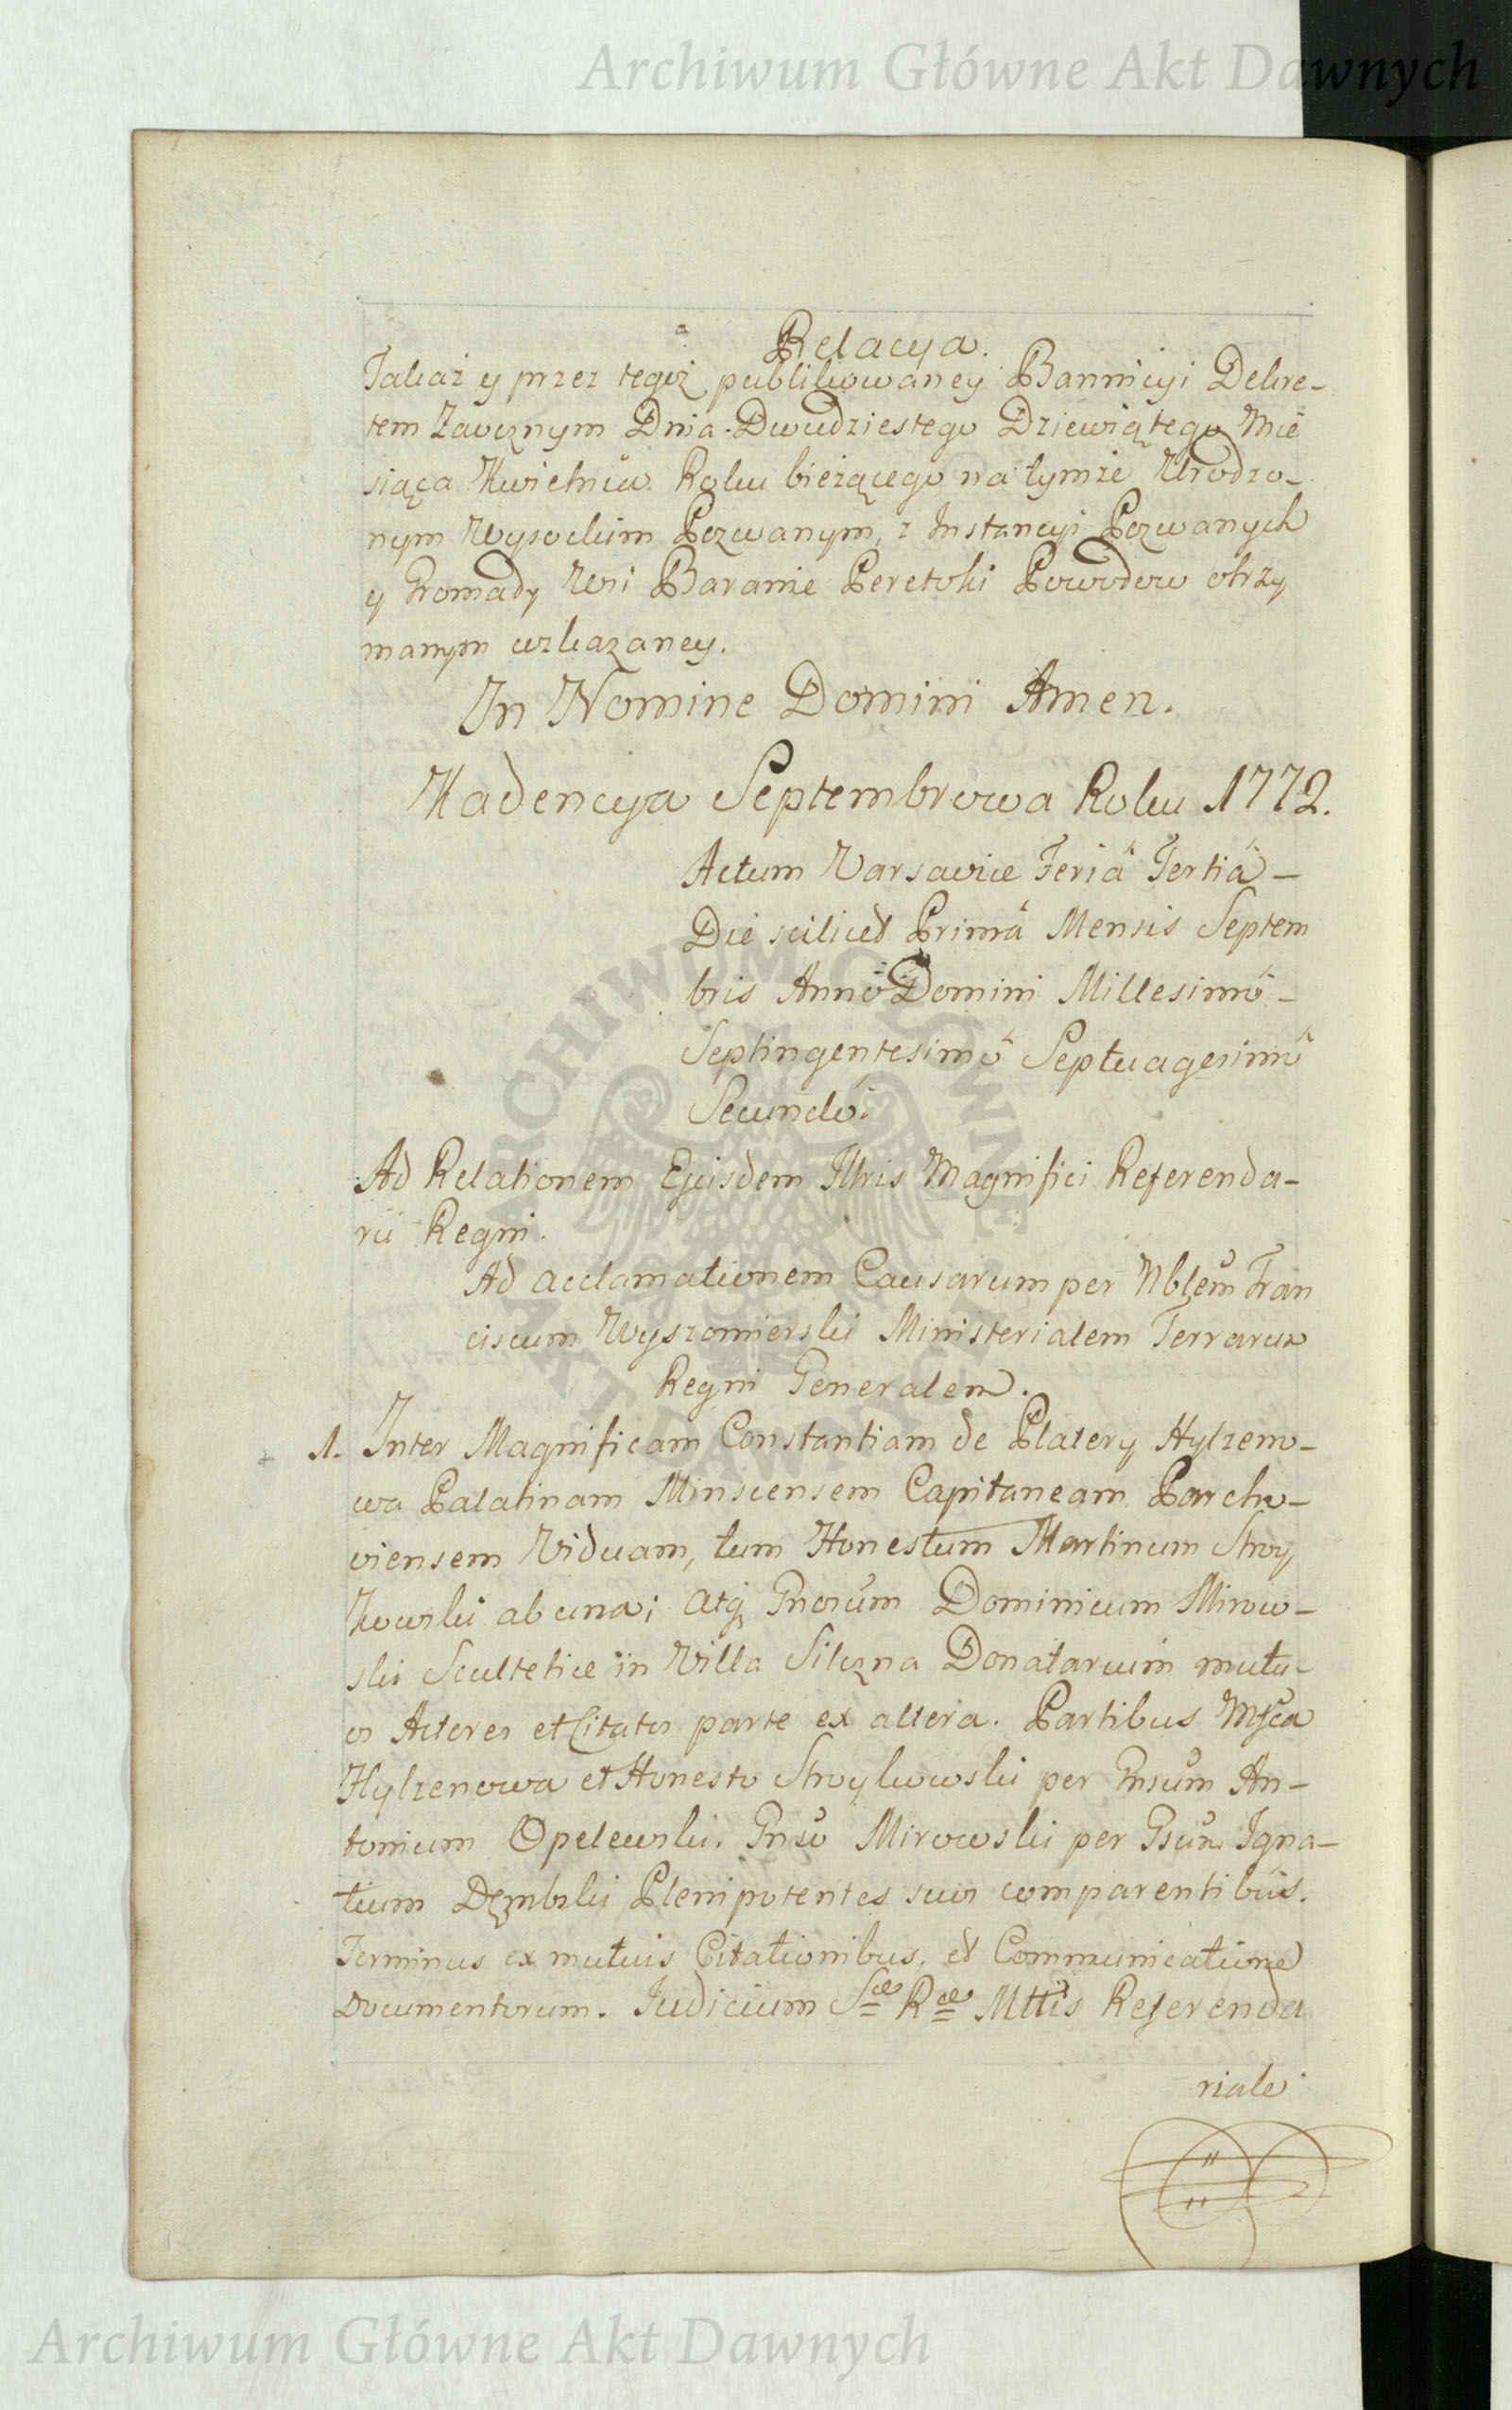 Archiwum Główne Akt Dawnych
Relacya.
Takaż y przez tegoż publikowaney Bannicyi Dekre-
tem Zaocznym Dnia Dwudziestego Dziewiątego Mie
siąca Kwietnia Roku bieżącego na tymże Urodzo-
nym Wysockim Pozwanym, z Instancyi Pozwanych
y Gromady Wsi Baranie Peretoki Powodow otrzy
manym wskazaney.
In Nomine Domini Amen.
Kadencya Septembrowa Roku 1772.
Actum Varsaviæ Feriâ Tertiâ -
Die scilicet Primâ Mensis Septem
bris Annô Domini Millesimô -
Septingentesimô Septuagesimô
Secundô.
Ad Relationem Ejusdem Illris Magnifici Referenda-
rii Regni.
Ad acclamationem Causarum per Nblem Fran
ciscum Wyszomierski Ministerialem Terrarum
Regni Generalem.
1. Inter Magnificam Constantiam de Platery Hylzeno-
wa Palatinam Minscensem Capitaneam Parcho-
viensem Viduam, tum Honestum Martinum Stroy
kowski ab una; atq Gnosum Dominicum Mirow-
ski Scultetiæ in Villa Silczna Donatarium mutu-
os Actores et Citatos parte ex altera. Partibus Mfca
Hylzenowa et Honesto Stroykowski per Gnsum An-
tonium Opelewski. Gnso Mirowski per Gsum Igna-
tium Dęmbski Plenipotentes suos comparentibus.
Terminus ex mutuis Citationibus, et Communicatione
Documentorum. Judicium Sæ Ræ Mttis Referenda
riale
ARCHIWUM GŁÓWNE AKT DAWNYCH
Archiwum Główne Akt Dawnych